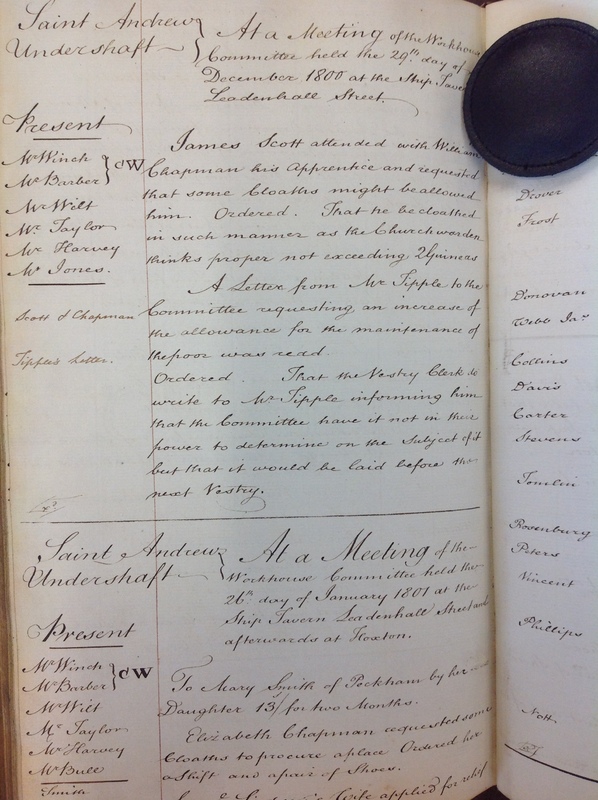 Saint Andrew
Undershaft
At a Meeting of the Workhouse
Committee held the 29th day of
December 1800 at the Ship Tavern
Leadenhall Street.
Present
Mr Winch
Mr Barber
CW
Mr Wilt
Mr Taylor
Mr Harvey
Mr Jones.
James Scott attended with William
Chapman his Apprentice and requested
that some Cloaths might be allowed
him. Ordered. That he be cloathed
in such manner as the Churchwarden
thinks proper not exceeding 2 Guineas
Scott & Chapman
Tipple's Letter.
A Letter from Mr Tipple to the
Committee requesting an increase of
the allowance for the maintenance of
the poor was read.
Ordered. That the Vestry Clerk do
write to Mr Tipple informing him
that the Committee have it not in their
power to determine on the Subject of it
but that it would be laid before the
next Vestry.
Saint Andrew
Undershaft
At a Meeting of the
Workhouse Committee held the
26th day of January 1801 at the
Ship Tavern Leadenhall Street and
afterwards at Hoxton.
Present
Mr Winch
Mr Barber
CW
Mr Wilt
Mr Taylor
Mr Harvey
Mr Bull
Smith
To Mary Smith of Peckham by her
Daughter 13/ for two Months.
Elizabeth Chapman requested some
Cloaths to procure a place Ordered her
a Shift and a pair of Shoes.
Wife applied for relief
Drover
Frost
Donovan
Webb Jas
Collins
Davis
Carter
Stevens
Tomlin
Rosenburg
Peters
Vincent
Phillips
Nott